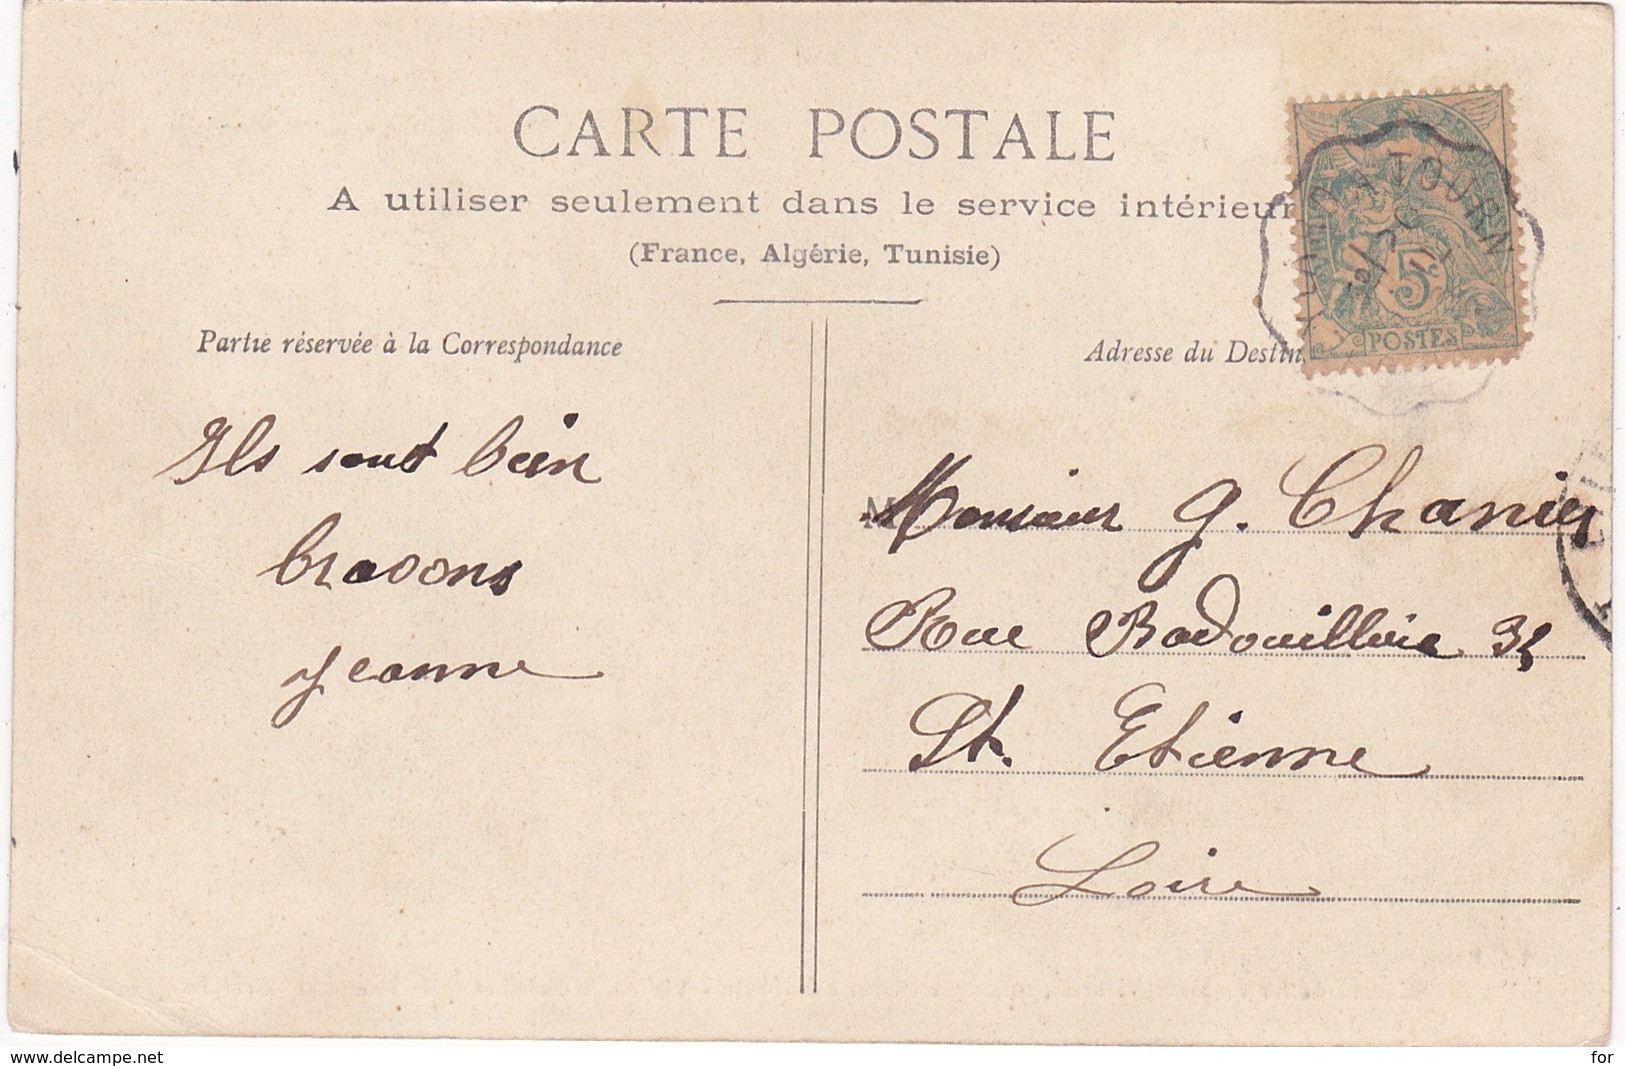 CARTE POSTALE
A utiliser seulement dans le service intérieur
(France, Algérie, Tunisie)
Partie réservée à la Correspondance
Adresse du Destin
5c
POSTES
TOURN
Ils sont bien
Jeanne
M Monsieur G. Chanier
Rue Badouillère 35
St. Etienne
Loire
www.delcampe.net
for